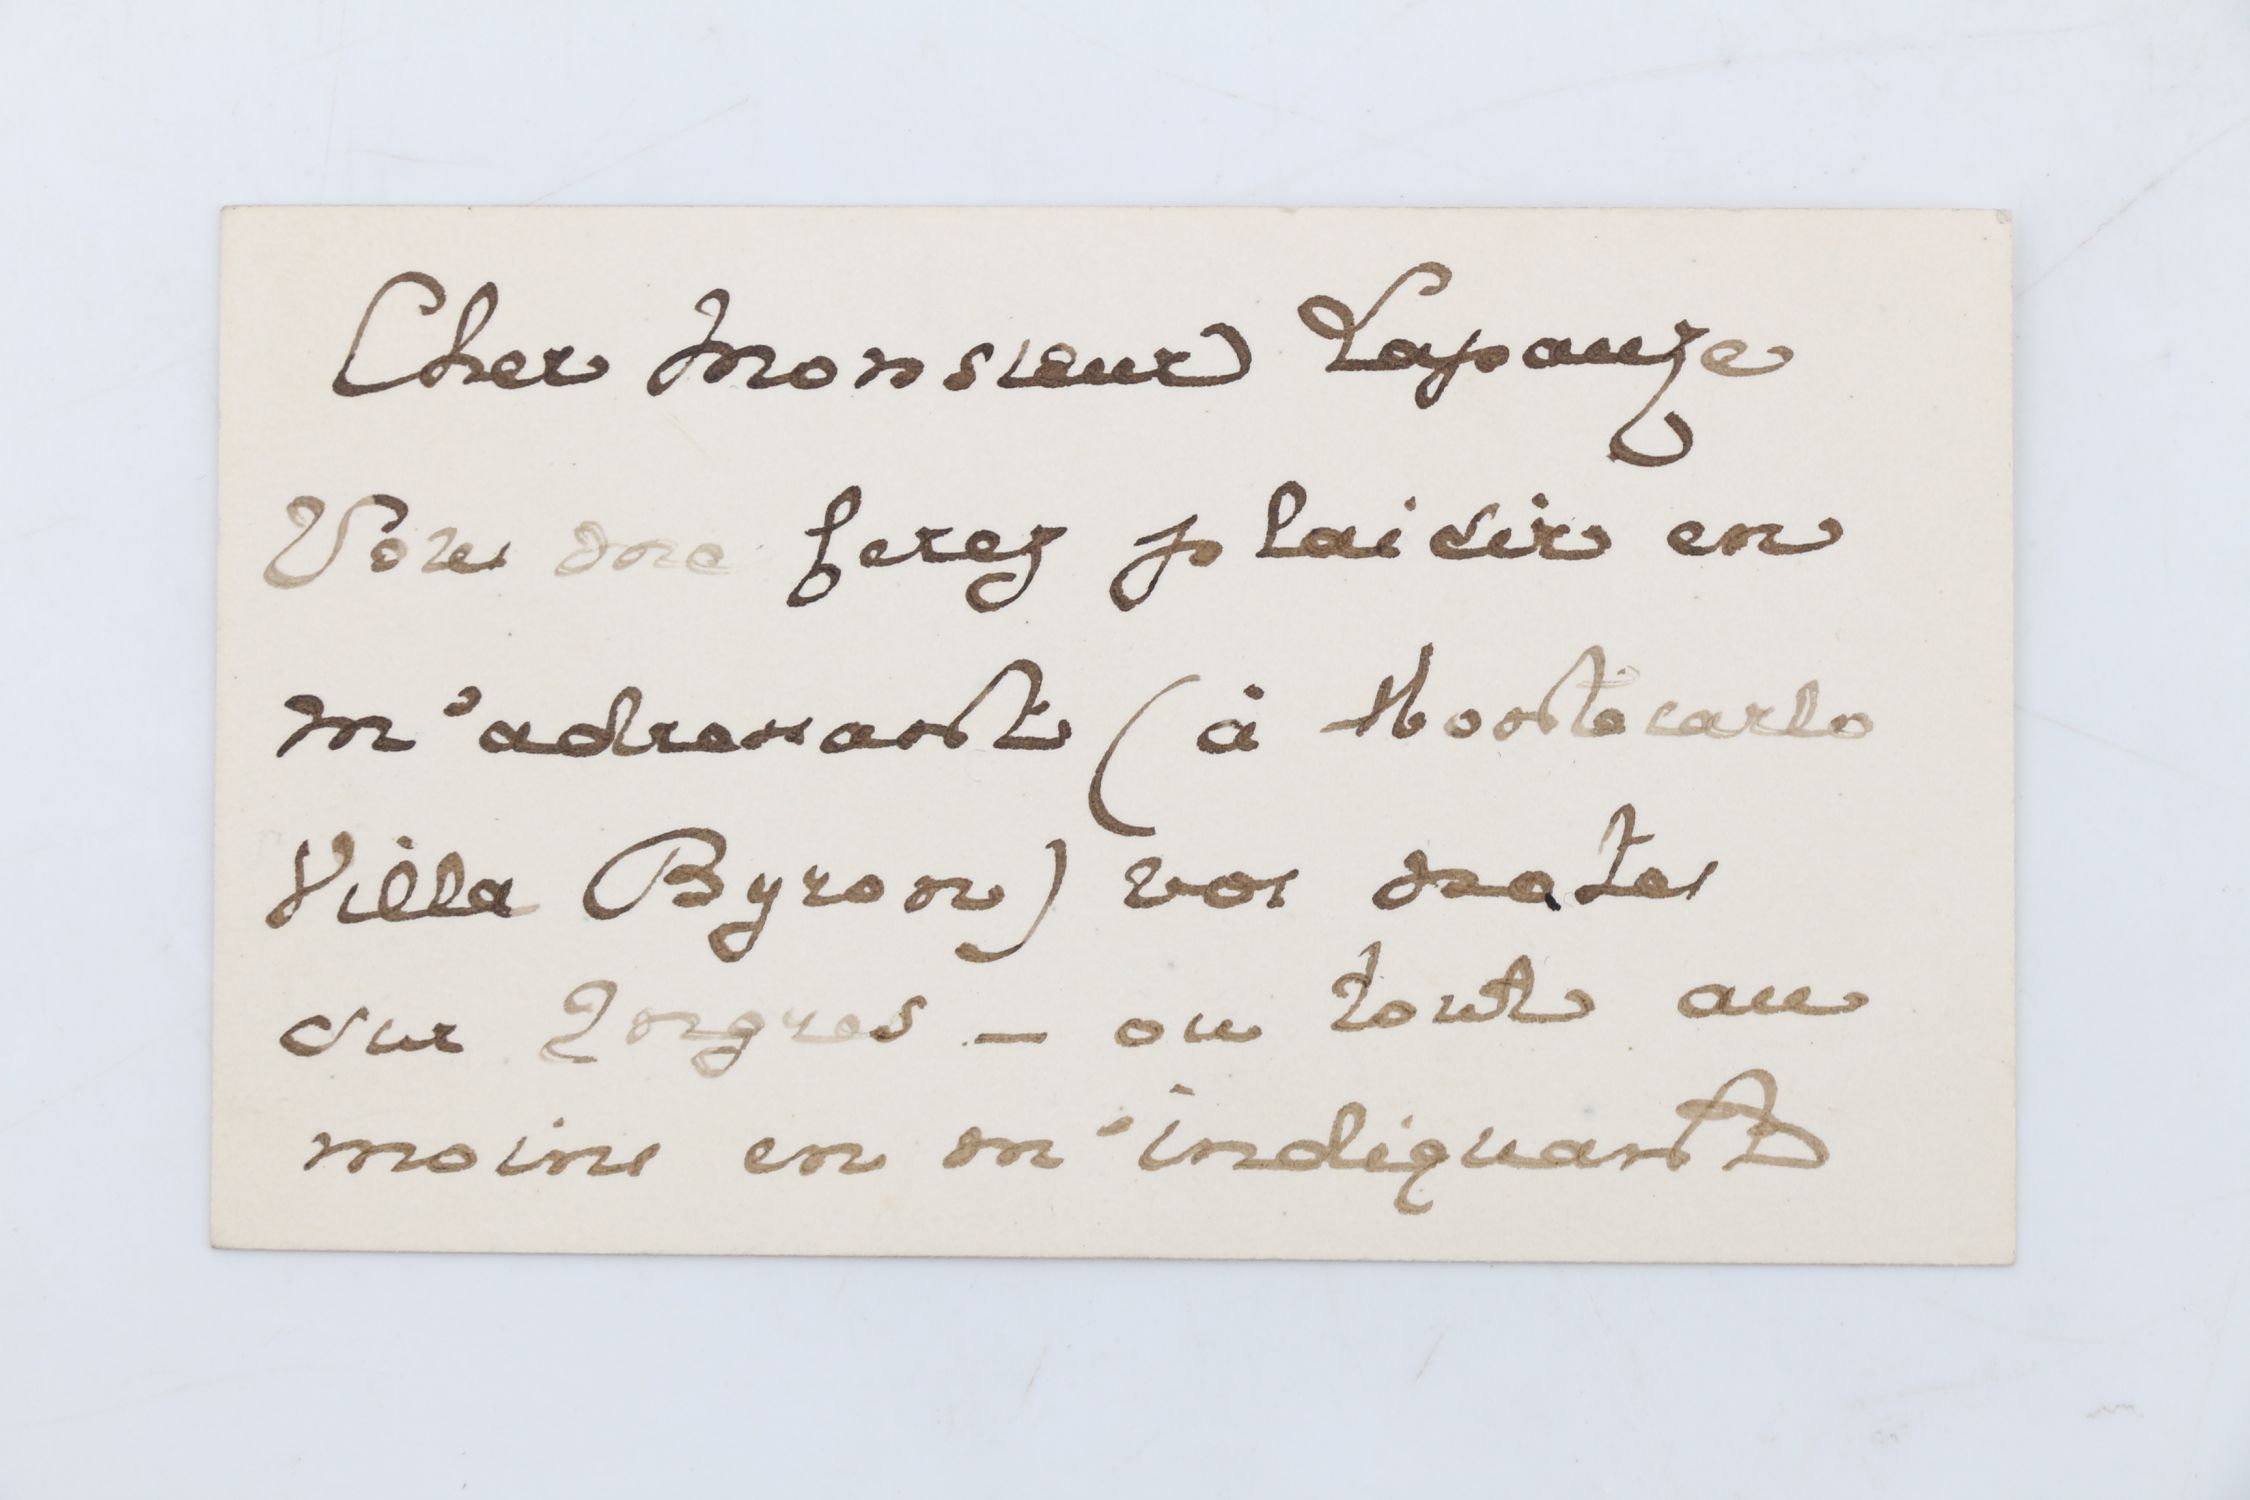 Cher Monsieur Lapauze
Vous me ferez plaisir en
m'adressant (à Montecarlo
Villa Byron) vos notes
sur Ingres — ou tout au
moins en m'indiquant